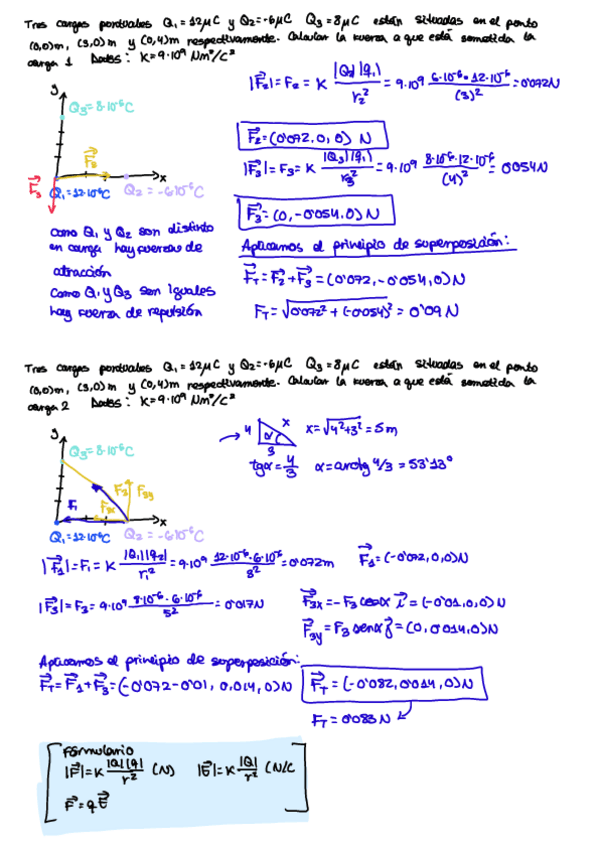 Tres cargas puntuales Q₁ = 12μC y Q₂ = -6μC Q₃ = 8μC están situadas en el punto
(0,0)m, (3,0)m y (0,4)m respectivamente. Calcular la fuerza a que está sometida la
carga 1 Datos: K = 9·10⁹ Nm²/C²
|F₂| = F₂ = K |Q₂||q₁| / r₂² = 9·10⁹ 6·10⁻⁶·12·10⁻⁶ / (3)² = 0'072N
y
Q₃ = 8·10⁻⁶C
F₂ = (0'072, 0, 0) N
|F₃| = F₃ = K |Q₃||q₁| / r₃² = 9·10⁹ 8·10⁻⁶·12·10⁻⁶ / (4)² = 0'054N
F₂
x
F₃
Q₁ = 12·10⁻⁶C Q₂ = -6·10⁻⁶C
F₃ = (0, -0'054, 0) N
Como Q₁ y Q₂ son distinto
en carga hay fuerzas de
atracción
Como Q₁ y Q₃ son iguales
hay fuerza de repulsión
Aplicamos el principio de superposición:
F_T = F₂ + F₃ = (0'072, -0'054, 0) N
F_T = √0'072² + (-0'054)² = 0'09 N
Tres cargas puntuales Q₁ = 12μC y Q₂ = -6μC Q₃ = 8μC están situadas en el punto
(0,0)m, (3,0)m y (0,4)m respectivamente. Calcular la fuerza a que está sometida la
carga 2 Datos: K = 9·10⁹ Nm²/C²
y
Q₃ = 8·10⁻⁶C
F₃ F₃y
F₁ F₃x
x
Q₁ = 12·10⁻⁶C Q₂ = -6·10⁻⁶C
4 α x 3 x = √4²+3² = 5m
tgα = 4/3 α = arctg 4/3 = 53'13°
|F₁| = F₁ = K |Q₁||q₂| / r₁² = 9·10⁹ 12·10⁻⁶·6·10⁻⁶ / 3² = 0'072m F₁ = (-0'072, 0, 0) N
|F₃| = F₃ = 9·10⁹ 8·10⁻⁶·6·10⁻⁶ / 5² = 0'017N
F₃x = -F₃ cosα i = (-0'01, 0, 0) N
F₃y = F₃ senα j = (0, 0'014, 0) N
Aplicamos el principio de superposición:
F_T = F₁ + F₃ = (-0'072 - 0'01, 0.014, 0) N F_T = (-0'082, 0'014, 0) N
F_T = 0'083 N
Formulario
|F| = K |Q||q| / r² (N) |E| = K |Q| / r² (N/C
F = q E